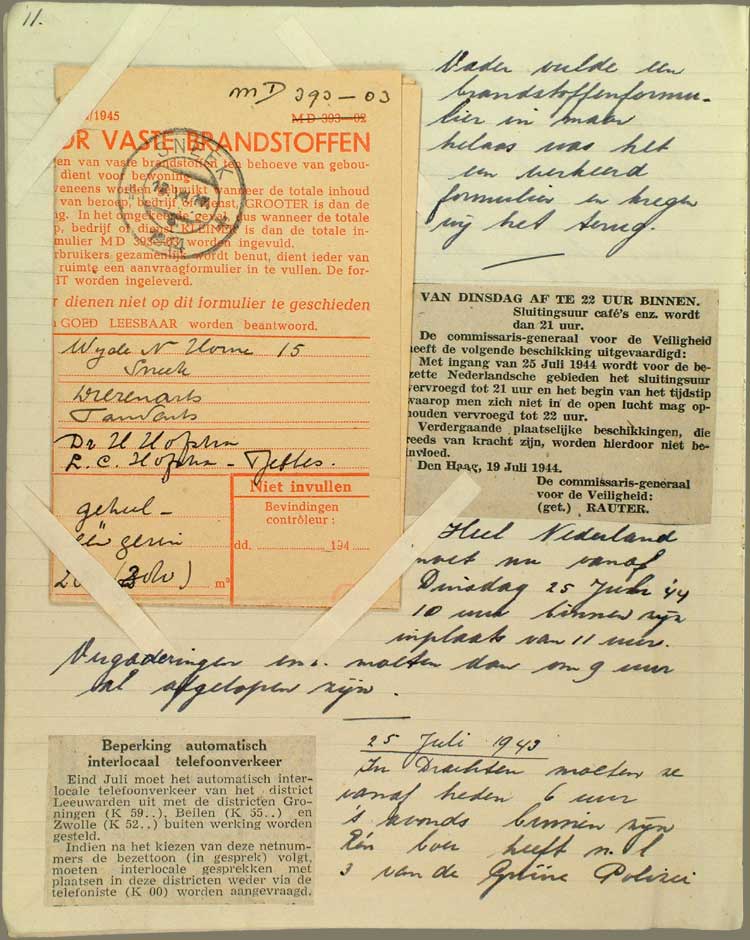 11.
MD 393-03
/1945
MD 393-02
OR VASTE BRANDSTOFFEN
SNEEK
en van vaste brandstoffen ten behoeve van gebou-
dient voor bewoning
eneens worden gebruikt wanneer de totale inhoud
van beroep, bedrijf of dienst, GROOTER is dan de
ng. In het omgekeerde geval, dus wanneer de totale
p, bedrijf of dienst KLEINER is dan de totale in-
mulier MD 393- worden ingevuld.
rbruikers gezamenlijk wordt benut, dient ieder van
ruimte een aanvraagformulier in te vullen. De for-
IT worden ingeleverd.
r dienen niet op dit formulier te geschieden
GOED LEESBAAR worden beantwoord.
Wijde N Horne 15
Sneek
Dierenarts
Tandarts
Dr H Hofstra
L. C. Hofstra - Jelles.
geheel -
één gezin
Niet invullen
Bevindingen
contrôleur :
dd. 194
m³
Vader vulde een
brandstoffenformu-
lier in maar
helaas was het
een verkeerd
formulier en kregen
wij het terug.
VAN DINSDAG AF TE 22 UUR BINNEN.
Sluitingsuur café's enz. wordt
dan 21 uur.
De commissaris-generaal voor de Veiligheid
heeft de volgende beschikking uitgevaardigd:
Met ingang van 25 Juli 1944 wordt voor de be-
zette Nederlandsche gebieden het sluitingsuur
vervroegd tot 21 uur en het begin van het tijdstip
waarop men zich niet in de open lucht mag op-
houden vervroegd tot 22 uur.
Verdergaande plaatselijke beschikkingen, die
reeds van kracht zijn, worden hierdoor niet be-
invloed.
Den Haag, 19 Juli 1944.
De commissaris-generaal
voor de Veiligheid:
(get.) RAUTER.
Heel Nederland
moet nu vanaf
Dinsdag 25 Juli '44
10 uur binnen zijn
inplaats van 11 uur.
Vergaderingen enz. moeten dan om 9 uur
al afgelopen zijn.
Beperking automatisch
interlocaal telefoonverkeer
Eind Juli moet het automatisch inter-
locale telefoonverkeer van het district
Leeuwarden uit met de districten Gro-
ningen (K 59..), Beilen (K 55..) en
Zwolle (K 52..) buiten werking worden
gesteld.
Indien na het kiezen van deze netnum-
mers de bezettoon (in gesprek) volgt,
moeten interlocale gesprekken met
plaatsen in deze districten weder via de
telefoniste (K 00) worden aangevraagd.
25 Juli 1943
In Drachten moeten ze
vanaf heden 6 uur
's avonds binnen zijn
Eén boer heeft n.l
3 van de Grüne Polizei